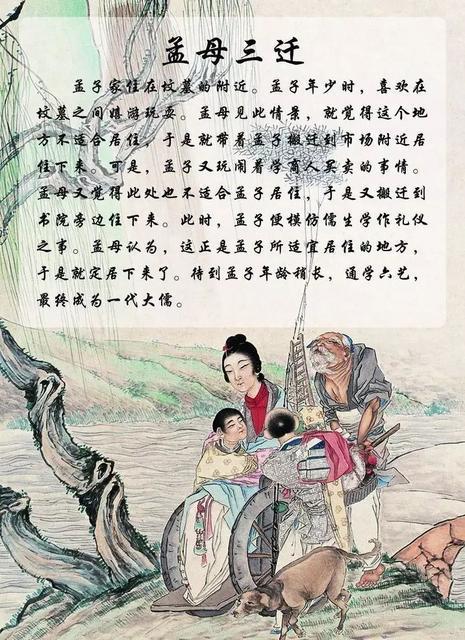 孟母三迁
孟子家住在坟墓的附近。孟子年少时，喜欢在
坟墓之间嬉游玩耍。孟母见此情景，就觉得这个地
方不适合居住，于是就带着孟子搬迁到市场附近居
住下来。可是，孟子又玩闹着学商人买卖的事情。
孟母又觉得此处也不适合孟子居住，于是又搬迁到
书院旁边住下来。此时，孟子便模仿儒生学作礼仪
之事。孟母认为，这正是孟子所适宜居住的地方，
于是就定居下来了。待到孟子年龄稍长，通学六艺，
最终成为一代大儒。